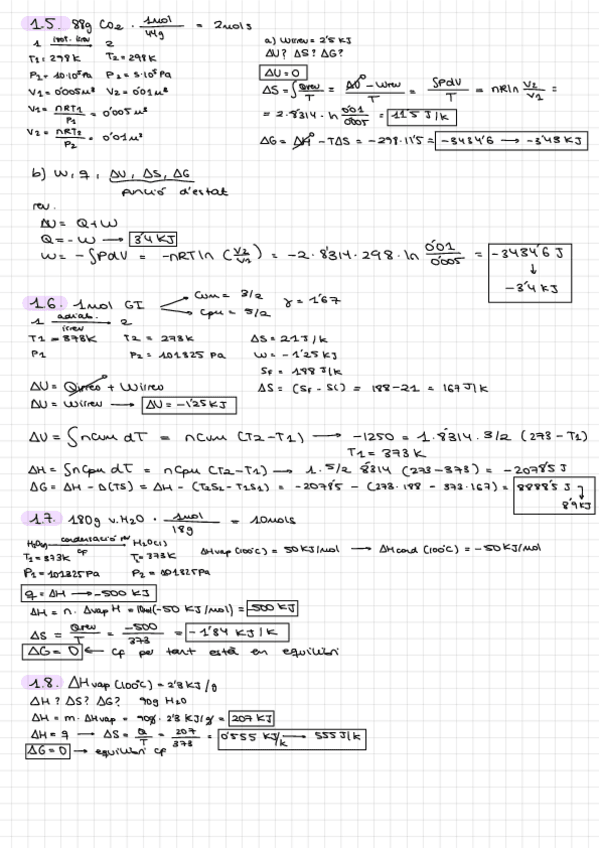 1.5. 88g CO2 · 1mol/44g = 2mols
1 isot. irrev → 2
T1 = 298K T2 = 298K
P1 = 10·10⁵Pa P2 = 5·10⁵Pa
V1 = 0'005m³ V2 = 0'01m³
V1 = nRT1/P1 = 0'005m³
V2 = nRT2/P2 = 0'01m³
a) Wirrev = 2'5 KJ
ΔU? ΔS? ΔG?
ΔU = 0
ΔS = ∫Qrev/T = ΔU⁰ - Wrev/T = ∫PdV/T = nRln V2/V1 =
= 2·8'314 · ln 0'01/0'005 = 11'5 J/K
ΔG = ΔH⁰ - TΔS = -298·11'5 = -3434'6 → -3'43 KJ
b) W, q, ΔU, ΔS, ΔG
funció d'estat
rev.
ΔU = Q+W
Q = -W → 3'4 KJ
W = -∫PdV = -nRTln (V2/V1) = -2·8'314·298·ln 0'01/0'005 = -3434'6 J
↓
-3'4 KJ
1.6. 1mol GI Cvm = 3/2 Cpm = 5/2 γ = 1'67
1 adiab. irrev → 2
T1 = 373K T2 = 273K ΔS = 21 J/K
P1 P2 = 101325 Pa W = -1'25 KJ
Sf = 188 J/K
ΔU = Qirrev + Wirrev ΔS = (Sf - Si) = 188-21 = 167 J/K
ΔU = Wirrev → ΔU = -1'25 KJ
ΔU = ∫nCvm dT = nCvm (T2-T1) → -1250 = 1·8'314·3/2 (273-T1)
T1 = 373K
ΔH = ∫nCpm dT = nCpm (T2-T1) → 1·5/2 8'314 (273-373) = -2078'5 J
ΔG = ΔH - Δ(TS) = ΔH - (T2S2-T1S1) = -2078'5 - (273·188 - 373·167) = 8888'5 J
8'9 KJ
1.7. 180g v.H2O · 1mol/18g = 10mols
H2O(g) condensació rev → H2O(l)
cp
T1 = 373K T2 = 373K ΔHvap (100ºC) = 50 KJ/mol → ΔHcond (100ºC) = -50 KJ/mol
P1 = 101325Pa P2 = 101325Pa
q = ΔH → -500 KJ
ΔH = n · ΔvapH = 10mol(-50 KJ/mol) = 500 KJ
ΔS = Qrev/T = -500/373 = -1'34 KJ/K
ΔG = 0 ← cp per tant està en equilibri
1.8. ΔHvap (100ºC) = 2'3 KJ/g
ΔH? ΔS? ΔG? 90g H2O
ΔH = m · ΔHvap = 90g · 2'3 KJ/g = 207 KJ
ΔH = q → ΔS = Q/T = 207/373 = 0'555 KJ/K → 555 J/K
ΔG = 0 → equilibri cp